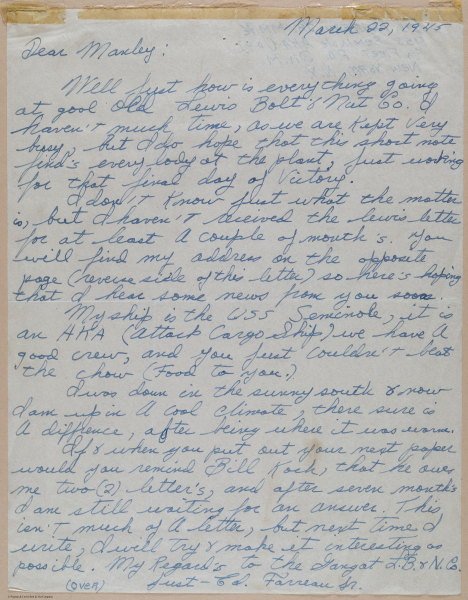 March 22, 1945
Dear Manley:
Well just how is everything going
at good Old Lewis Bolt's Nut Co. I
haven't much time, as we are Kept very
busy, but I do hope that this short note
find's every body at the plant, just working
for that final day of Victory.
I don't Know just what the matter
is, but I haven't received the lewis letter
for at least A couple of month's. you
will find my address on the opposite
page (reverse side of this letter) so here's hoping
that I hear some news from you soon.
My ship is the USS Seminole, it is
an AKA (Attack Cargo Ship) we have A
good crew, and you just couldn't beat
the chow (Food to you.)
I was down in the sunny south & now
I am up in A cool climate, there sure is
A diffence, after being where it was warm.
If & when you put out your next paper
would you remind Bill Koch, that he owes
me two (2) letter's, and after seven month's
I am still waiting for an answer. This
isn't much of A letter, but next time I
write, I will try & make it interesting as
possible. My Regard's to the Gang at L.B. & N. Co.
(over) Just - Ed. Farreau Jr.